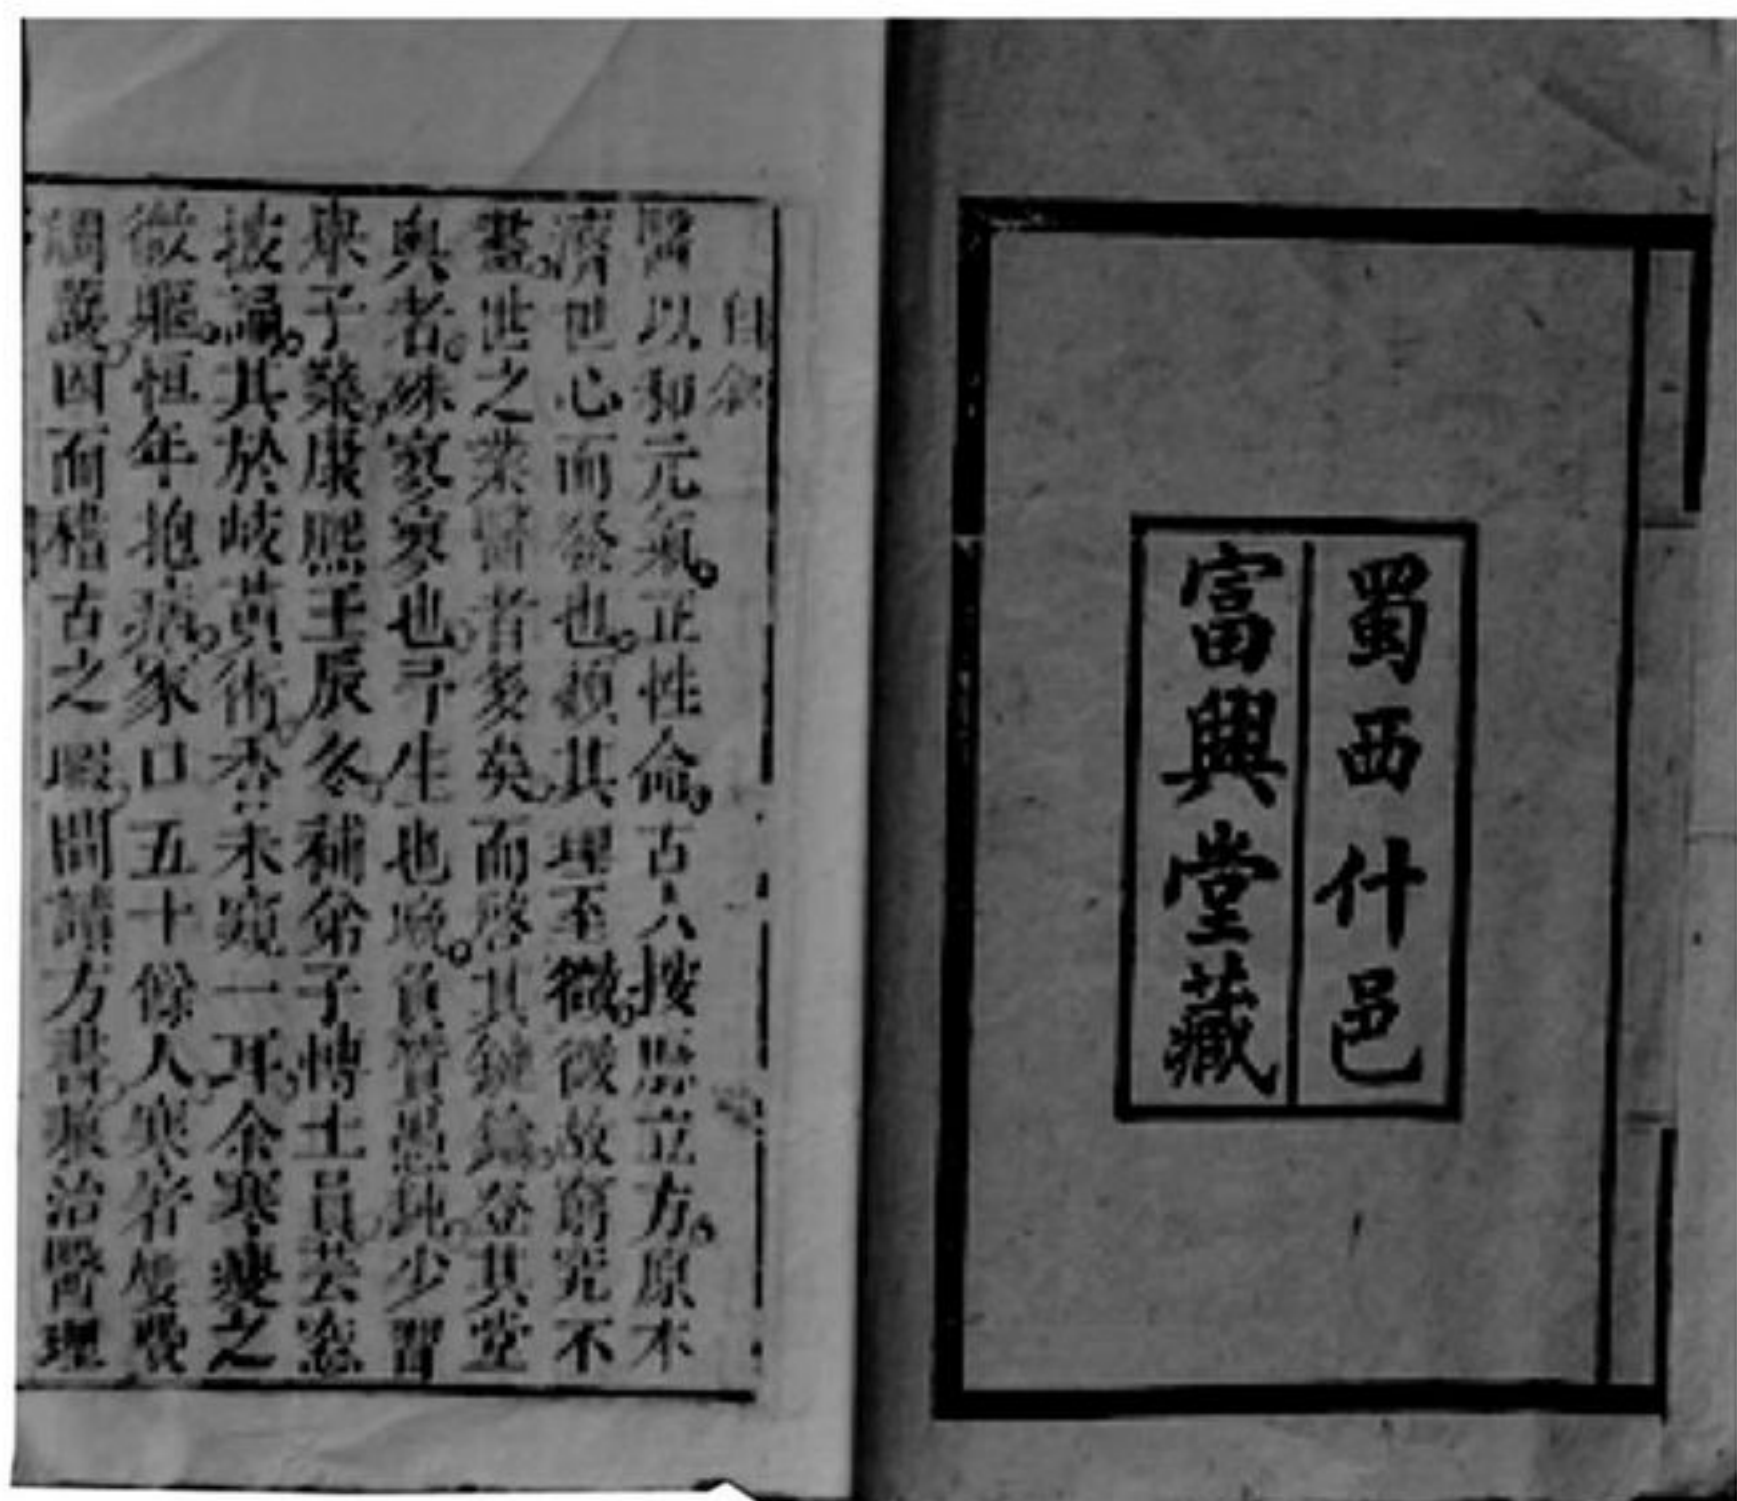 蜀西什邑
富興堂藏
自敘
醫以和元氣。正性命。古人按脉立方。原本
濟世心而發也。顧其理至微。微故窮究不
盡。世之業醫者多矣。而啓其鍵鑰。登其堂
與者。殊寥寥也。予生也晚。負質愚鈍。少習
舉子業。康熙壬辰冬。補弟子博士員。芸窓
披誦。其於岐黃術。杳未窺一耳。余寒瘦之
微軀。恒年抱病。家口五十餘人。寒者屢
因而稽古之暇。間讀方書。治醫理